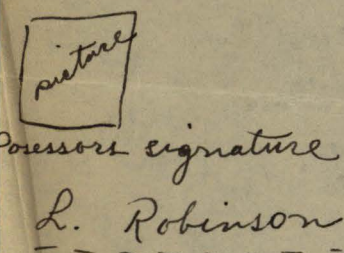 picture
Posessors signature
L. Robinson